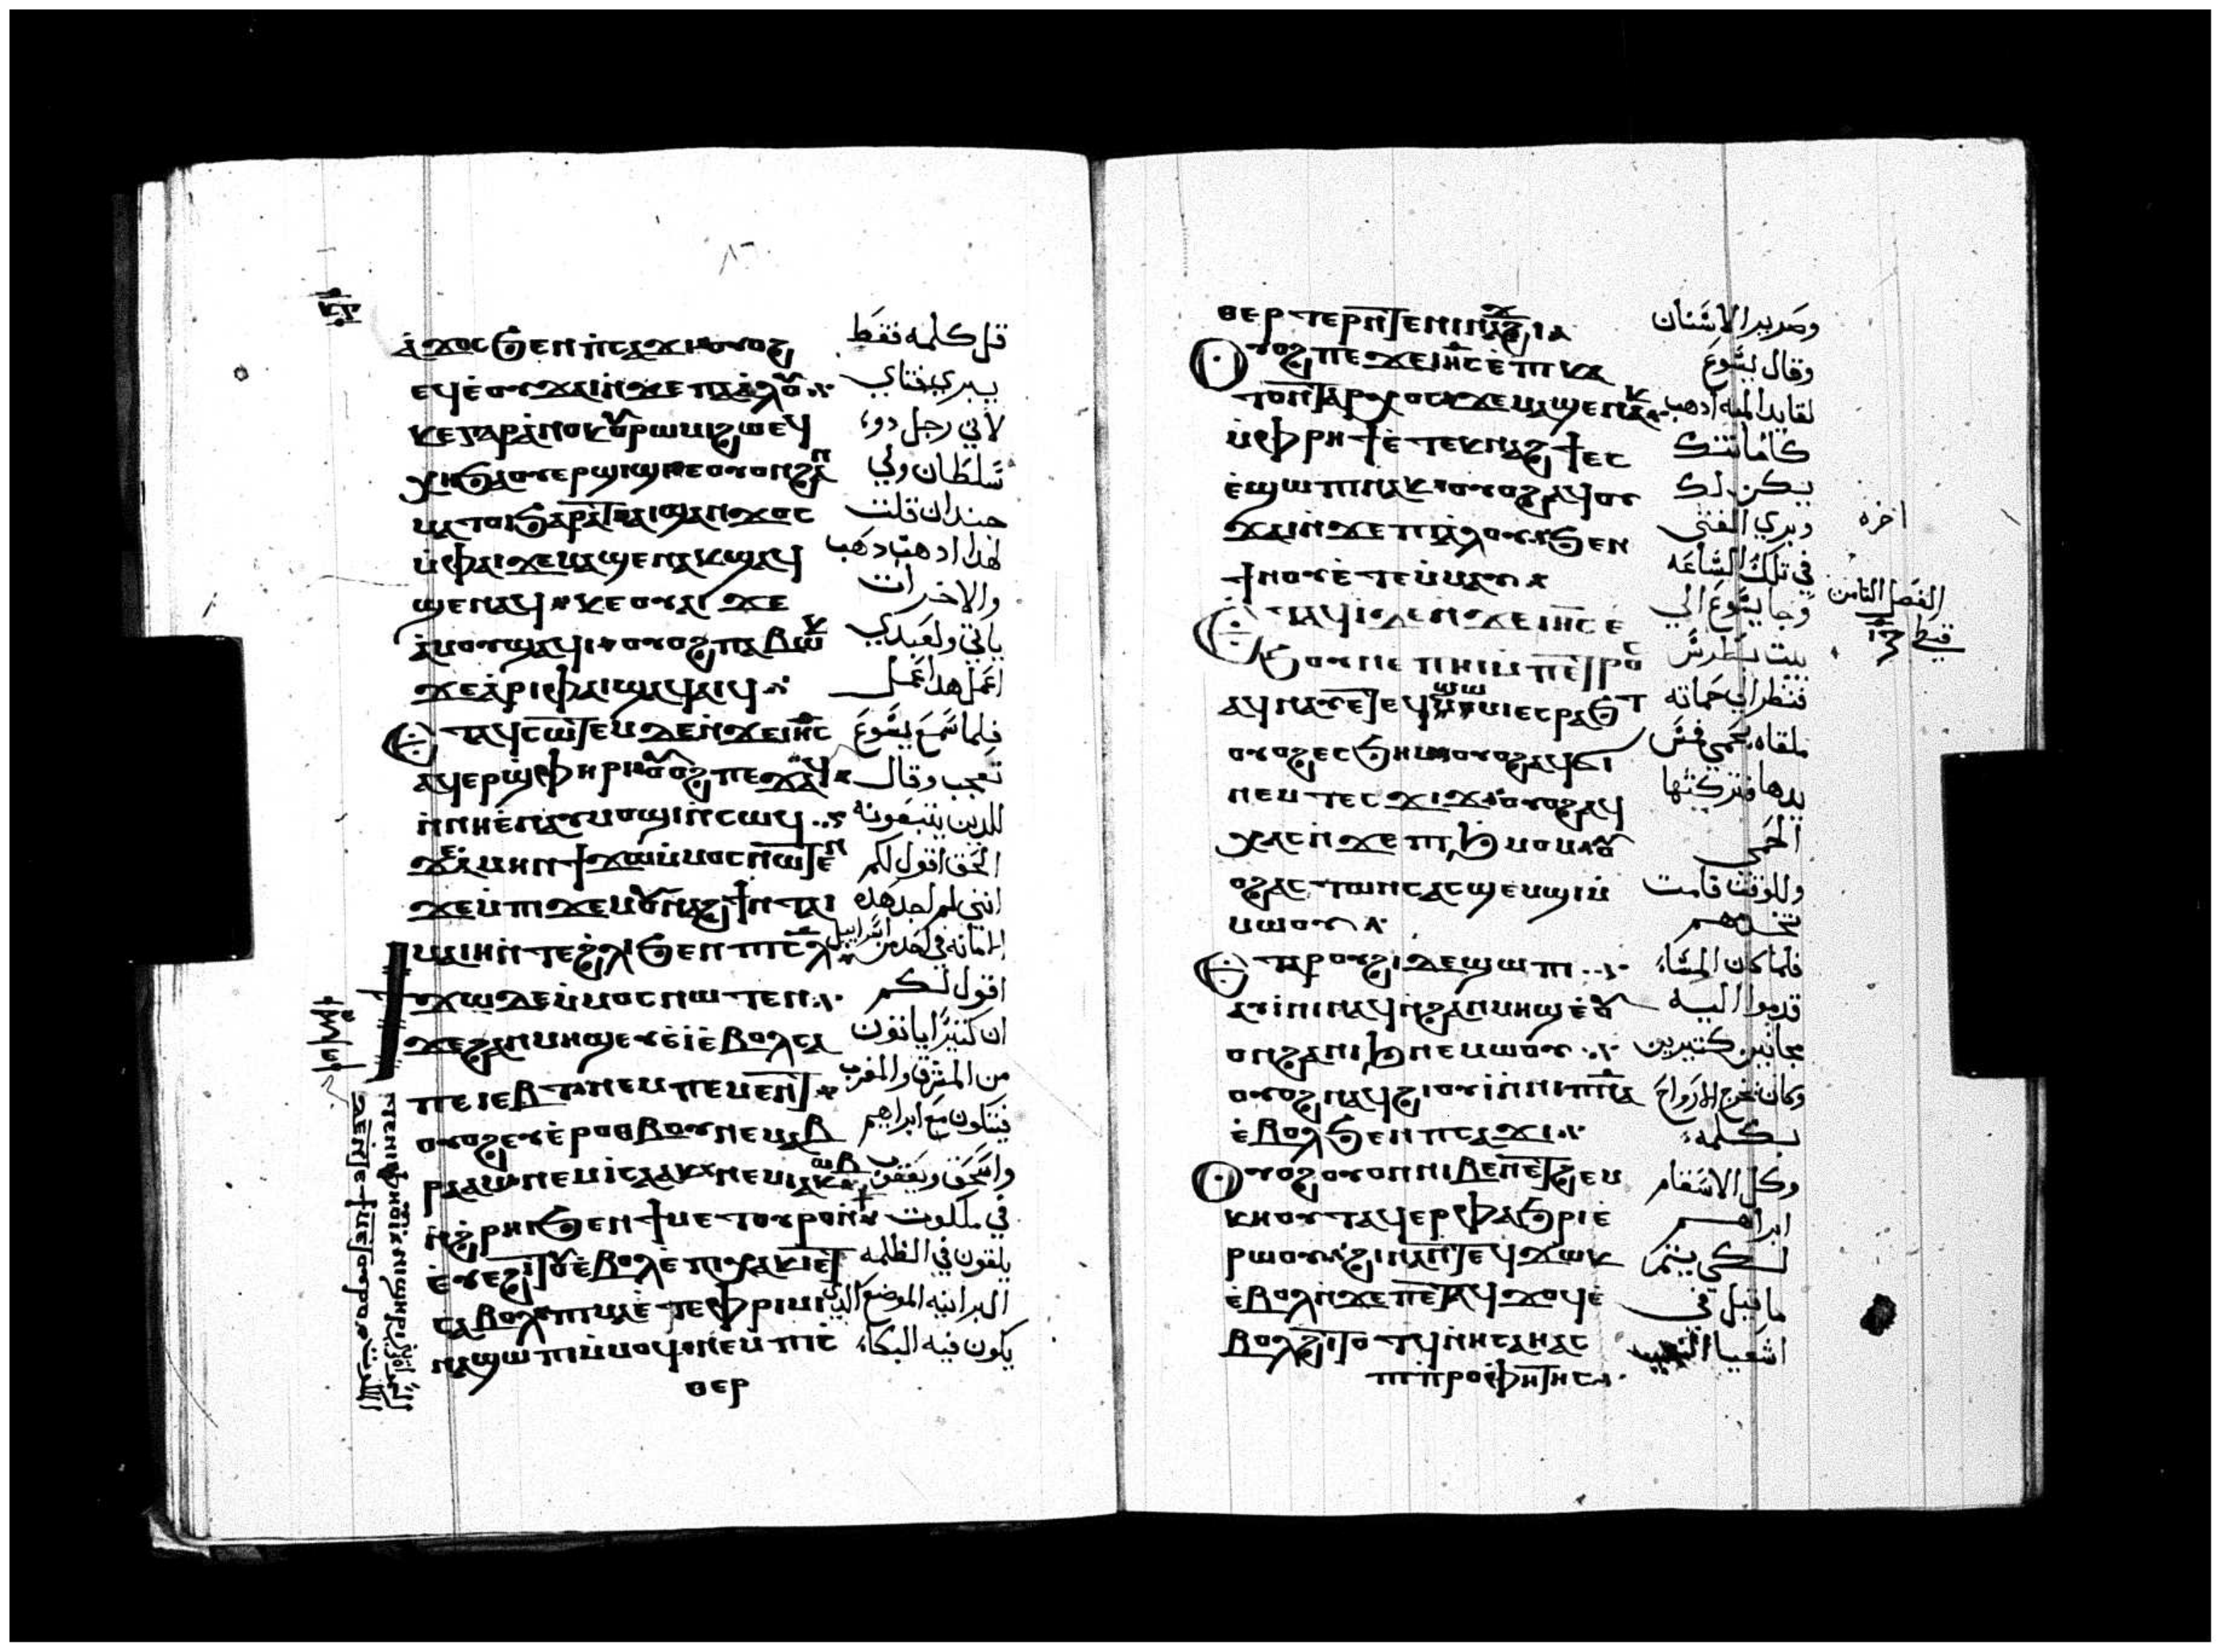 ⲕ̅ⲋ̅
ⲁϫⲟⲥ ϧⲉⲛ ⲡⲥⲁϫⲓ ⲟⲩⲟϩ قل كلمه فقط
ⲉϥⲉⲟⲩϫⲁⲓ ⲛϫⲉ ⲡⲁⲁⲗⲟⲩ يبري فتاي
ⲕⲉ ⲅⲁⲣ ⲁⲛⲟⲕ ⲟⲩⲣⲱⲙⲓ ϩⲱ ⲉϥ لاني رجل دو
ⲭⲏ ϧⲁ ⲟⲩⲉⲣϣⲓϣⲓ ⲉⲟⲩⲟⲛ ϩⲁⲛ سلطان ولي
ⲙⲁⲧⲟⲓ ϧⲁⲣⲁⲧ ⲁⲓϣⲁⲛϫⲟⲥ جند ان قلت
ⲙⲫⲁⲓ ϫⲉ ⲙⲁϣⲉⲛⲁⲕ ϣⲁϥ لهدا ادهب دهب
ϣⲉⲛⲁϥ ⲕⲉⲟⲩⲁⲓ ϫⲉ والاخر ات
ⲁⲙⲟⲩ ϣⲁϥⲓ ⲟⲩⲟϩ ⲡⲁⲃⲱⲕ ياتي ولعبدي
ϫⲉ ⲁⲣⲓⲫⲁⲓ ϣⲁϥⲁⲓϥ اعمل هدا عمل
ⲉⲧⲁϥⲥⲱⲧⲉⲙ ⲇⲉ ⲛϫⲉ ⲓⲏⲥ فلما سمع يسوع
ⲁϥⲉⲣϣⲫⲏⲣⲓ ⲟⲩⲟϩ ⲡⲉϫⲁϥ تعجب وقال
ⲛⲛⲏ ⲉⲛⲁⲩⲙⲟϣⲓ ⲛⲥⲱϥ للدين يتبعونه
ϫⲉ ⲁⲙⲏⲛ ϯϫⲱ ⲙⲙⲟⲥ ⲛⲱⲧⲉⲛ الحق اقول لكم
ϫⲉ ⲙⲡⲓϫⲉⲙ ⲟⲩⲛⲁϩϯ ⲛⲧⲁⲓ انني لم اجد هده
ⲙⲁⲓⲏ ⲛⲧⲉ ϩⲗⲓ ϧⲉⲛ ⲡⲓⲥⲗ الامانه في احد من اسراييل
ϯϫⲱ ⲇⲉ ⲙⲙⲟⲥ ⲛⲱⲧⲉⲛ اقول لكم
ϫⲉ ϩⲁⲛⲙⲏϣ ⲉⲩⲉⲓ ⲉⲃⲟⲗ ⲥⲁ ان كثيرا ياتون
ⲡⲉⲓⲉⲃⲧ ⲛⲉⲙ ⲡⲉⲙⲉⲛⲧ من المشرق والمغرب
ⲟⲩⲟϩ ⲉⲩⲉⲣⲟⲑⲃⲟⲩ ⲛⲉⲙ ⲁⲃ فيتكون مع ابراهيم
ⲣⲁⲁⲙ ⲛⲉⲙ ⲓⲥⲁⲁⲕ ⲛⲉⲙ ⲓⲁⲕⲱⲃ واسحق ويعقوب
ⲛϩⲣⲏⲓ ϧⲉⲛ ϯⲙⲉⲧⲟⲩⲣⲟ ⲛ في ملكوت
ⲉⲩⲉϩⲓⲧⲟⲩ ⲉⲃⲟⲗ ⲉⲡⲓⲭⲁⲕⲓ ⲉⲧ يلقون في الظلمه
ⲥⲁⲃⲟⲗ ⲡⲓⲙⲁ ⲉⲧⲉ ⲫⲣⲓⲙⲓ البرانيه الموضع الدي
ⲛⲁϣⲱⲡⲓ ⲙⲙⲟϥ ⲛⲉⲙ ⲡⲓⲥ يكون فيه البكاء
ⲑⲉⲣ
ⲑⲉⲣⲧⲉⲣ ⲛⲧⲉ ⲛⲓⲛⲁϫϩⲓ وصرير الاسنان
ⲟⲩⲟϩ ⲡⲉϫⲉ ⲓⲏⲥ ⲉⲡⲓⲕⲁ وقال يسوع
ⲧⲟⲛⲧⲁⲣⲭⲟⲥ ϫⲉ ⲙⲁϣⲉⲛⲁⲕ لقايد الميه ادهب
ⲙⲫⲣⲏϯ ⲉⲧⲉⲕⲛⲁϩϯ ⲉⲥ كامانتك
ⲉϣⲱⲡⲓ ⲛⲁⲕ ⲟⲩⲟϩ ⲁϥⲟⲩ يكن لك
ϫⲁⲓ ⲛϫⲉ ⲡⲓⲁⲗⲟⲩ ϧⲉⲛ وبري الفتى
ϯⲟⲩⲛⲟⲩ ⲉⲧⲉⲙⲙⲁⲩ في تلك الساعه
اخره
الفصل الثامن
قبطي
ⲉⲧⲁϥⲓ ⲇⲉ ⲛϫⲉ ⲓⲏⲥ ⲉ وجا يسوع الي
ϧⲟⲩⲛ ⲉⲡⲏⲓ ⲙⲡⲉⲧⲣⲟⲥ بيت بطرس
ⲁϥⲛⲁⲩ ⲉⲧⲉϥϣⲱⲙⲓ ⲉⲥⲣⲁϧⲧ فنظر الي حماته
ⲟⲩⲟϩ ⲉⲥϧⲏⲙ ⲟⲩⲟϩ ⲁϥϭⲓ ملقاه بحمي فمس
ⲛⲉⲙ ⲧⲉⲥϫⲓϫ ⲟⲩⲟϩ ⲁϥ يدها فتركتها
ⲭⲁⲥ ⲛϫⲉ ⲡⲓϧⲙⲟⲙ ⲟⲩ الحمي
ⲟϩ ⲁⲥⲧⲱⲛⲥ ⲁⲥϣⲉⲙϣⲓ ⲙ وللوقت قامت
ⲙⲱⲟⲩ تخدمهم
ⲉⲧⲁ ⲣⲟⲩϩⲓ ⲇⲉ ϣⲱⲡⲓ فلما كان المساء
ⲁⲩⲓⲛⲓ ⲛⲁϥ ⲛϩⲁⲛⲙⲏϣ ⲉⲟⲩ قدموا اليه
ⲟⲛ ϩⲁⲛⲓϧ ⲛⲉⲙⲱⲟⲩ مجانين كتيرين
ⲟⲩⲟϩ ⲛⲁϥϩⲓⲟⲩⲓ ⲛⲛⲓⲡⲛⲁ وكان يخرج الارواح
ⲉⲃⲟⲗ ϧⲉⲛ ⲡⲥⲁϫⲓ بكلمه
ⲟⲩⲟϩ ⲟⲩⲟⲛ ⲛⲓⲃⲉⲛ ⲉⲧϩⲉⲙ وكل الاسقام
ⲕⲏⲟⲩⲧ ⲁϥⲉⲣⲫⲁϧⲣⲓ ⲉ ابراهم
ⲣⲱⲟⲩ ϩⲓⲛⲁ ⲛⲧⲉϥϫⲱⲕ لكي يتم
ⲉⲃⲟⲗ ⲛϫⲉ ⲡⲉⲧⲁϥϫⲟϥ ⲉ ما قيل في
ⲃⲟⲗ ϩⲓⲧⲟⲧϥ ⲛⲏⲥⲁⲏⲁⲥ اشعيا
ⲡⲓⲡⲣⲟⲫⲏⲧⲏⲥ